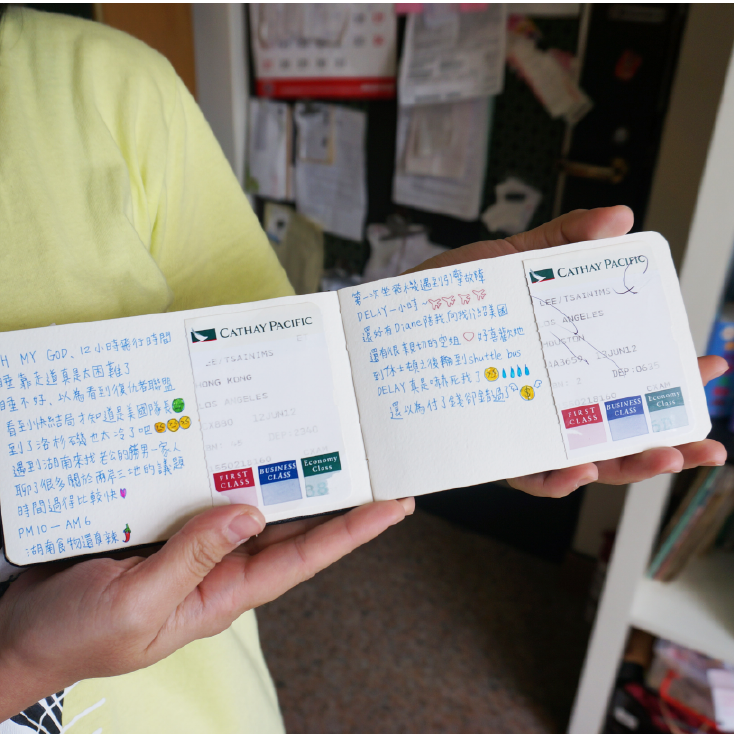 H MY GOD、12小時飛行時間
睡靠走道真是太困難了
睡不好、以為看到復仇者聯盟
看到快結局才知道是美國隊長
到了洛杉磯也太冷了吧
遇到湖南來找老公的一家人
聊了很多關於兩岸三地的議題
時間過得比較快
PM10－AM6
湖南食物還真辣
CATHAY PACIFIC
EE/TSAINIMS
HONG KONG
LOS ANGELES
12JUN12
FIRST CLASS
BUSINESS CLASS
Economy Class
38
第一次坐飛機遇到引擎故障
DELAY一小時~
還好有Diane陪我向我介紹美國
還有很親切的空姐 好喜歡她
到休士頓之後輪到shuttle bus
DELAY真是嚇死我了
還以為付了錢卻錯過了
CATHAY PACIFIC
LEE/TSAINIMS
LOS ANGELES
HOUSTON
12JUN12
DEP:0635
SEAT
FIRST CLASS
BUSINESS CLASS
Economy Class